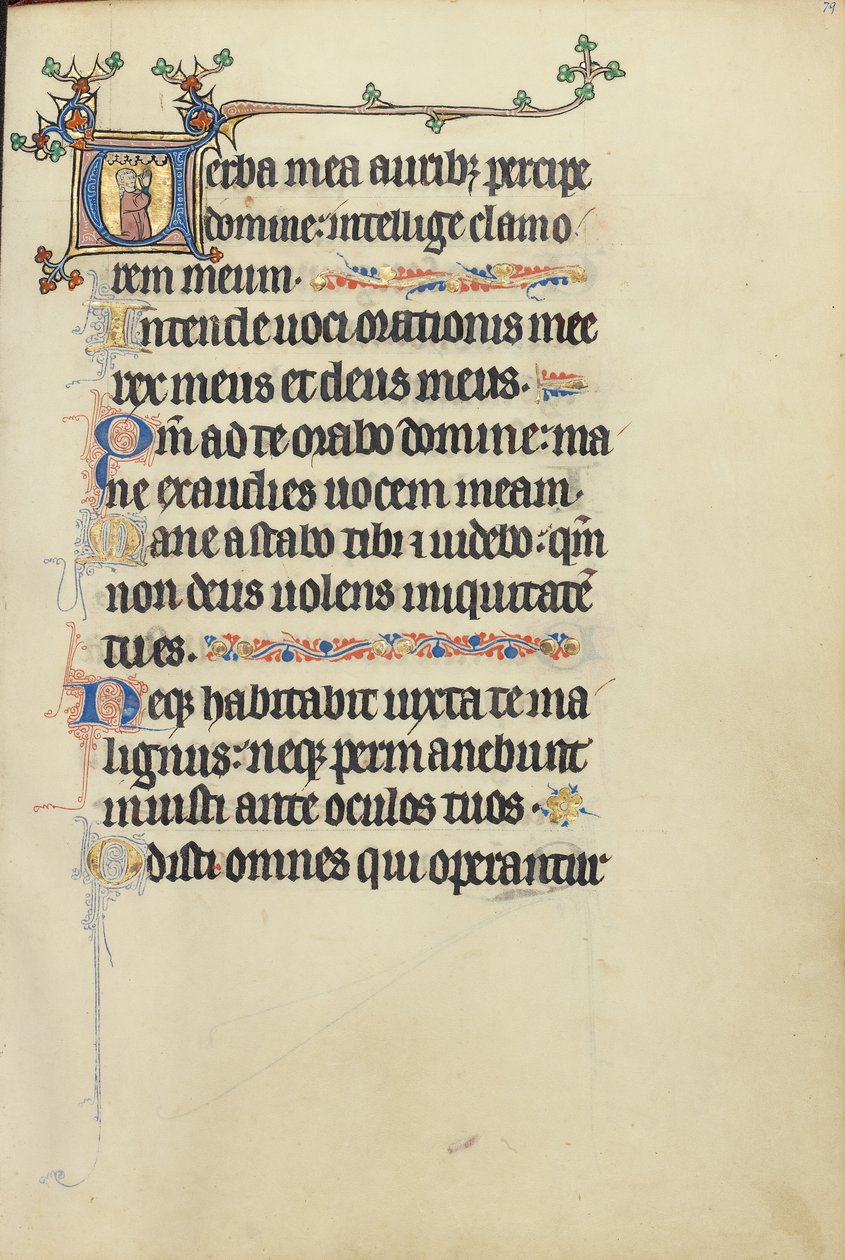 79
Verba mea auribꝫ percipe
domine: intellige clamo
rem meum.
Intende uoci orationis mee
rex meus et deus meus.
Qm̄ ad te orabo domine: ma
ne exaudies uocem meam.
Mane astabo tibi ⁊ uidebo: qm̄
non deus uolens iniquitatē
tu es.
Neqꝫ habitabit iuxta te ma
lignus: neqꝫ permanebunt
iniusti ante oculos tuos.
Odisti omnes qui operantur